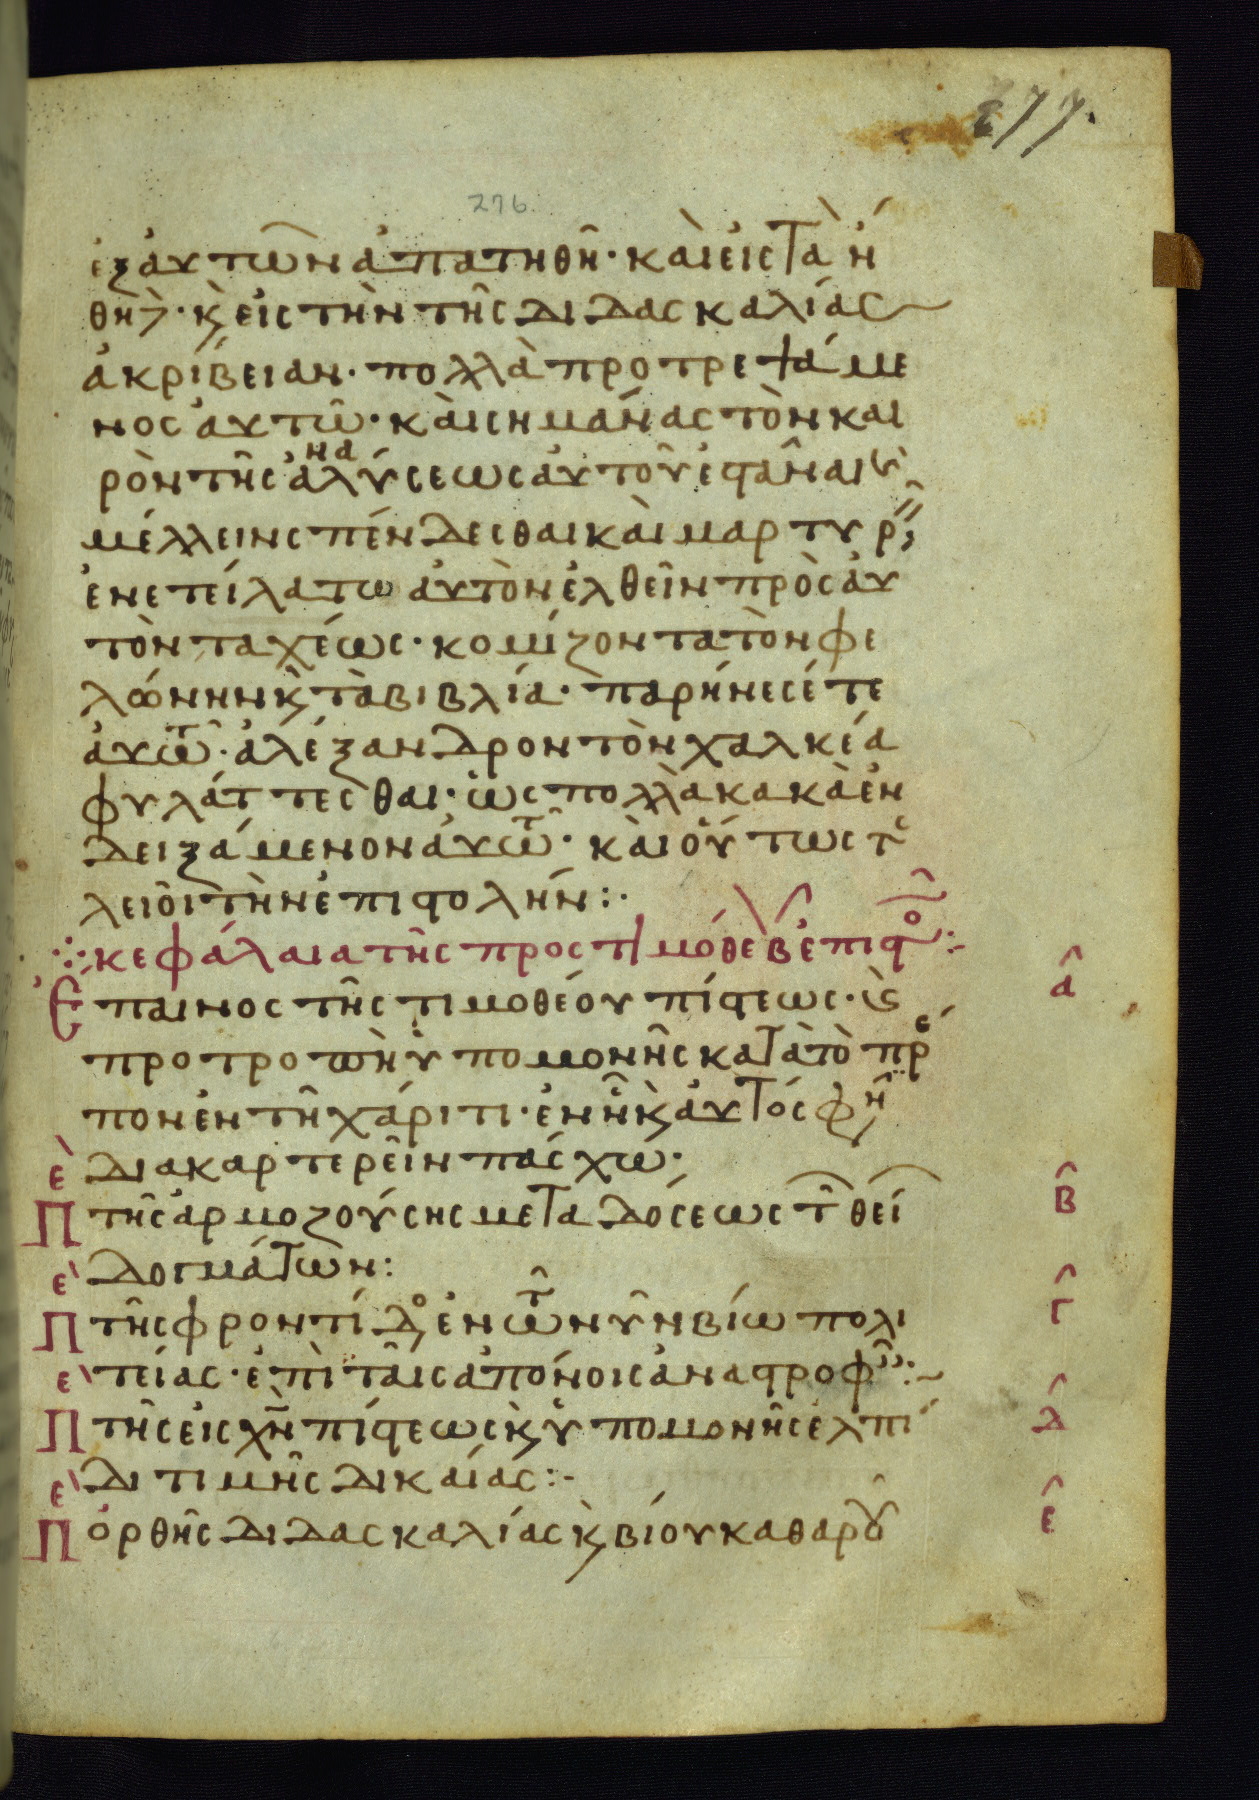 277.
276.
ἐξ αὐτῶν ἀπατηθῆ· καὶ εἰς τὰ ἤ
θη δ̀· κ̀ εἰς τὴν τῆς διδασκαλίας
ἀκρίβειαν· πολλὰ προτρεψάμε
νος αὐτῶ· καὶ σημάνας τὸν και
ρὸν τῆς ἀναλύσεως αὐτοῦ εἰ φᾶναι
μέλλειν σπένδεσθαι καὶ μαρτυρ
ἐνετείλατω αὐτὸν ἐλθεῖν πρὸς αὐ
τὸν ταχέως· κομίζοντα τὸν φε
λώνην κ̀ τὰ βιβλία· παρήνεσέ τε
αὐτῶ· ἀλέξανδρον τὸν χαλκέα
φυλάττεσθαι· ὡς πολλὰ κακὰ ἐν
δειξάμενον αὐτῶ· καὶ οὕτως τε
λειοῖ τὴν ἐπιστολήν:·
κεφάλαια τῆς προς τιμόθε β ἐπιστο:-
Ἔπαινος τῆς τιμοθέου πίστεως· ἐς α
προτροπὴ ὑπομονῆς κατὰ τὸ πρέ
πον ἐν τῆ χάριτι· ἐν ἧ κ̀ αὐτός φη
διακαρτερεῖν πάσχω·
Πὲ τῆς ἁρμοζούσης μεταδόσεως τ θεί β
δογμάτων:
Πε τῆς φροντίδο ἐν τῶ νῦν βίω πολι γ
τείας· ἐπὶ ταῖς ἀπόνοις ἀναστροφ:~
Πε τῆς εἰς χν πίστεως κ̀ ὑπομονῆς ἐλπί δ
δι τιμῆς δικαίας:-
Πε ὀρθῆς διδασκαλίας κ̀ βίου καθαροῦ ε